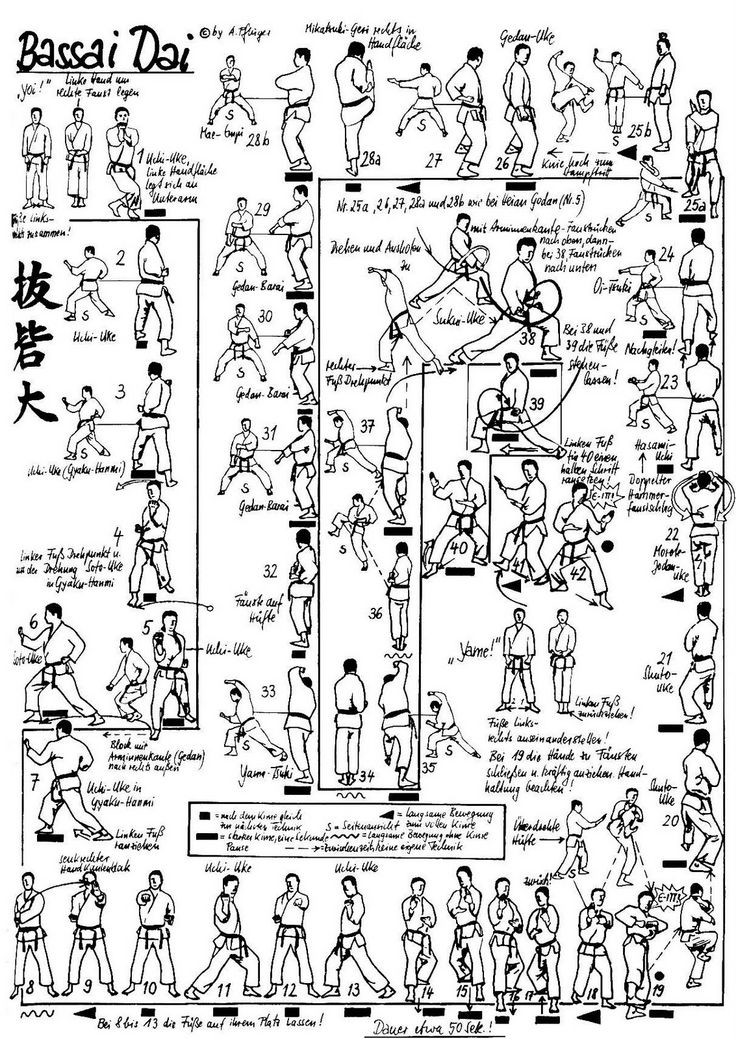 Bassai Dai
© by A. Pflüger
„Yoi!"
Linke Hand um
rechte Faust legen
Füße links-
zusammen!
抜
砦
大
1
Uchi-Uke,
linke Handfläche
legt sich an
Unterarm
2
S
Uchi-Uke
3
S
Uchi-Uke (Gyaku-Hanmi)
4
Linker Fuß Drehpunkt u.
mit der Drehung Soto-Uke
in Gyaku-Hanmi
5
Uchi-Uke
6
Soto-Uke
Block mit
Arminnenkante (Gedan)
nach rechts außen
7
Uchi-Uke in
Gyaku-Hanmi
Linken Fuß
ranziehen
senkrechter
Handkantenblock
8
9
10
Uchi-Uke
11
12
Uchi-Uke
13
14
15
16
17
zurück!
18
19
E-ITTS
Überdrehte
Hüfte
Bei 8 bis 13 die Füße auf ihrem Platz lassen!
Dauer etwa 50 Sek.!
20
Shuto-
Uke
21
Shuto-
Uke
22
Morote-
Jodan-
Uke
Doppelter
Hammer-
faustschlag
Hasami-
Uchi
23
S
Nachgleiten!
24
Oi-Tsuki
S
25a
S
25b
S
Knie hoch zum
Stampftritt
Gedan-Uke
26
27
S
28a
Mikatsuki-Geri rechts in
Handfläche
28b
S
Mae-Empi
Nr. 25a, 26, 27, 28a und 28b wie bei Heian Godan (Nr. 5)
29
S
Gedan-Barai
30
S
Gedan-Barai
31
S
Gedan-Barai
32
Fäuste auf
Hüfte
33
S
Yama-Tsuki
34
35
S
36
S
37
S
Drehen und Ausholen
zu
rechter
Fuß Drehpunkt
mit Arminnenkante-Faustrücken
nach oben, dann
bei 38 Faustrücken
nach unten
Sukui-Uke
38
Bei 38 und
39 die Füße
stehen-
lassen!
39
Linken Fuß
für 40 einen
halben Schritt
ransetzen!
40
41
42
E-ITTS
„Yame!"
Linken Fuß
zurückziehen!
Füße links-
rechts auseinanderstellen!
Bei 19 die Hände zu Fäusten
schließen u. kräftig anziehen. Hand-
haltung beachten!
= nach dem Kime gleich
zur nächsten Technik
= starkes Kime, eine Sekunde
Pause
= langsame Bewegung
zum vollen Kime
S = Seitenansicht
= langsame Bewegung ohne Kime
= Zwischenzeit, keine eigene Technik